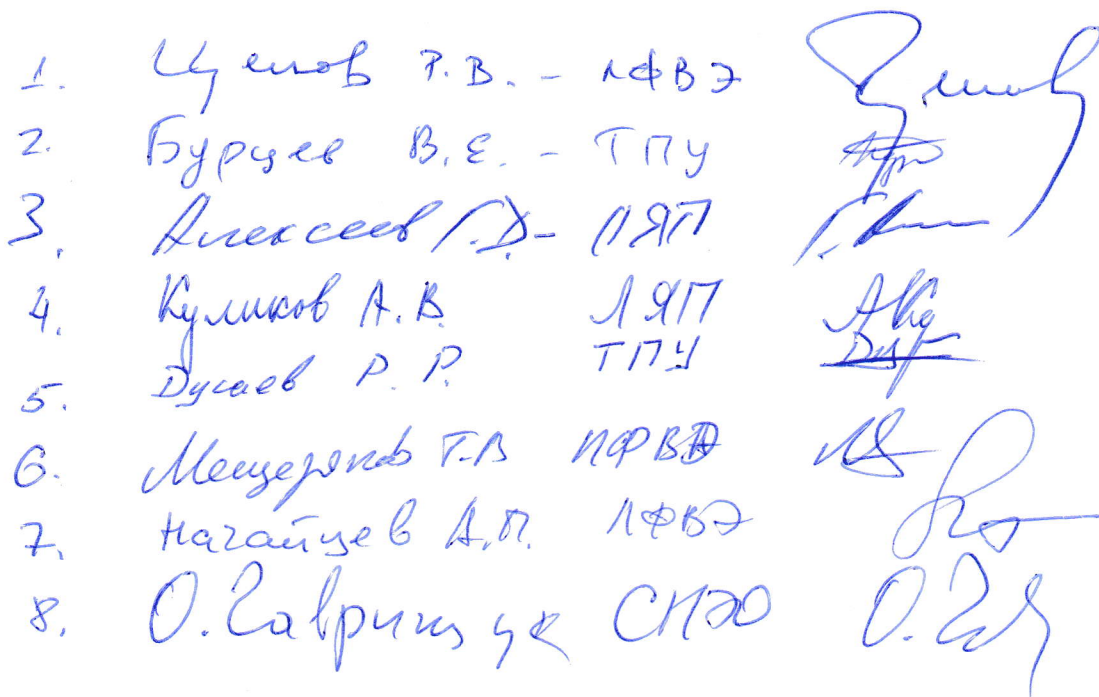 1. Р.В. - ЛФВЭ
2. Бурцев В.Е. - ТПУ
3. Алексеев Г.Д - ЛЯП
4. Куликов А.В. ЛЯП
5. Дусаев Р.Р. ТПУ
6. Мещеряков Г.В ЛФВЭ
7. Нагайцев А.П. ЛФВЭ
8. О. Гаврищук СНЭО